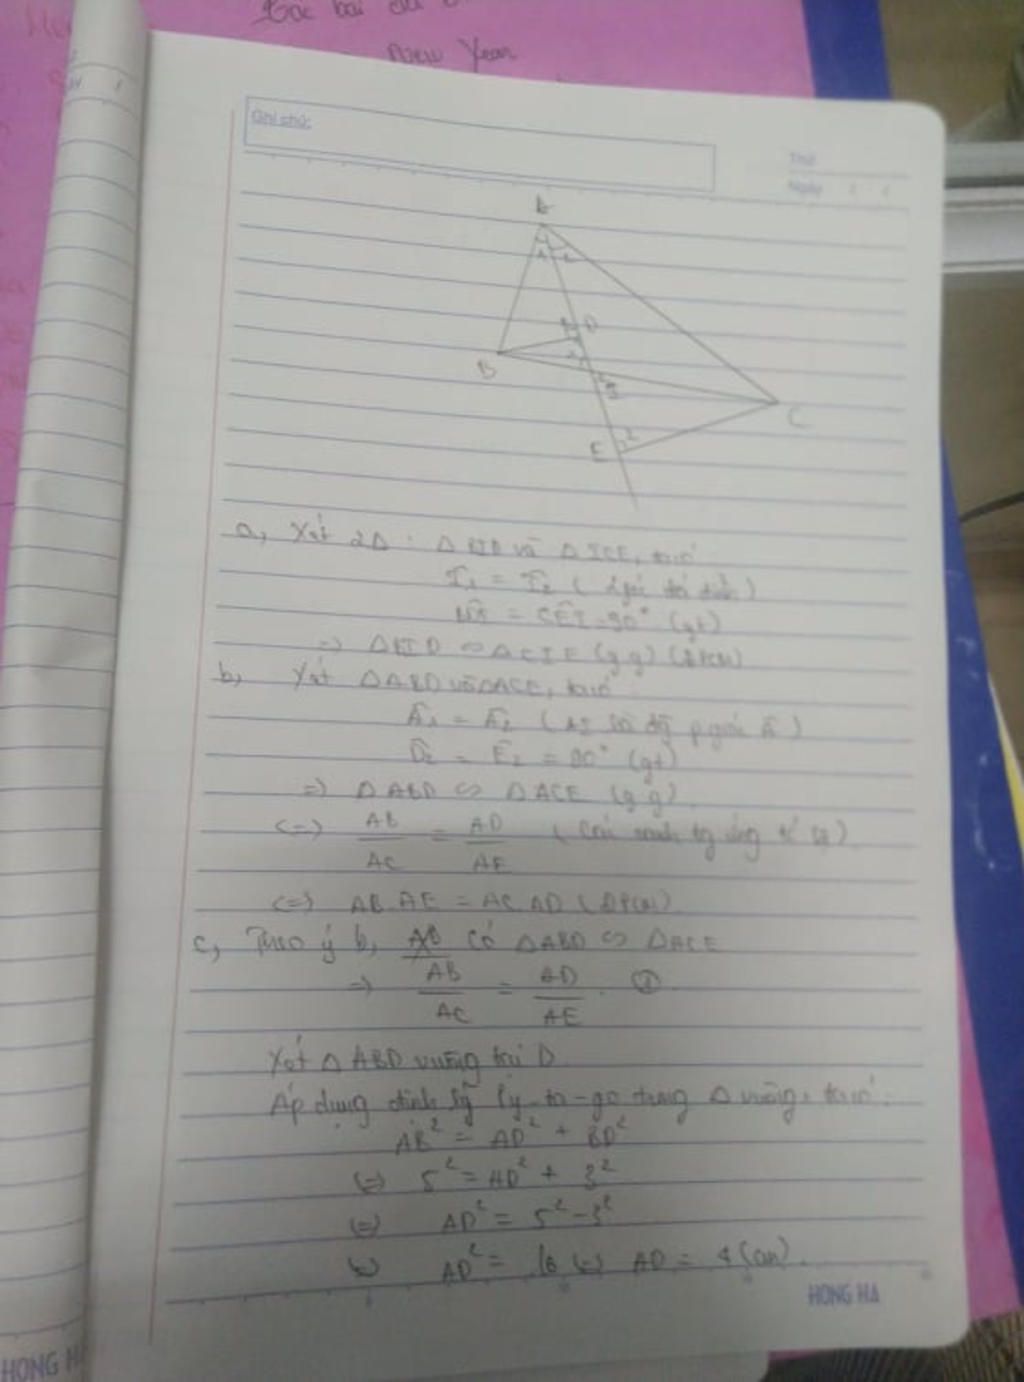 New Year
Ghi chú:
Thứ
Ngày
A
B
D
C
E 2
a, Xét 2Δ: Δ BID và Δ ICE, ta có
I₁ = I₂ ( 2 góc đối đỉnh )
= CEI = 90° (gt)
=> Δ BID ∽ Δ CIE (g.g) (ĐPCM)
b, Xét ΔABD và ΔACE, ta có
Â₁ = Â₂ ( AI là p giác Â )
D̂₂ = Ê₂ = 90° (gt)
=> Δ ABD ∽ Δ ACE (g.g)
<=> AB/AC = AD/AE ( cạnh tg ứng tỉ lệ )
<=> AB.AE = AC.AD (ĐPCM)
c, Theo ý b, có ΔABD ∽ ΔACE
=> AB/AC = AD/AE . ①
Xét Δ ABD vuông tại D
Áp dụng định lý Py-ta-go trong Δ vuông, ta có:
AB² = AD² + BD²
<=> 5² = AD² + 3²
<=> AD² = 5² - 3²
<=> AD² = 16 <=> AD = 4 (cm).
HONG HA
HONG H